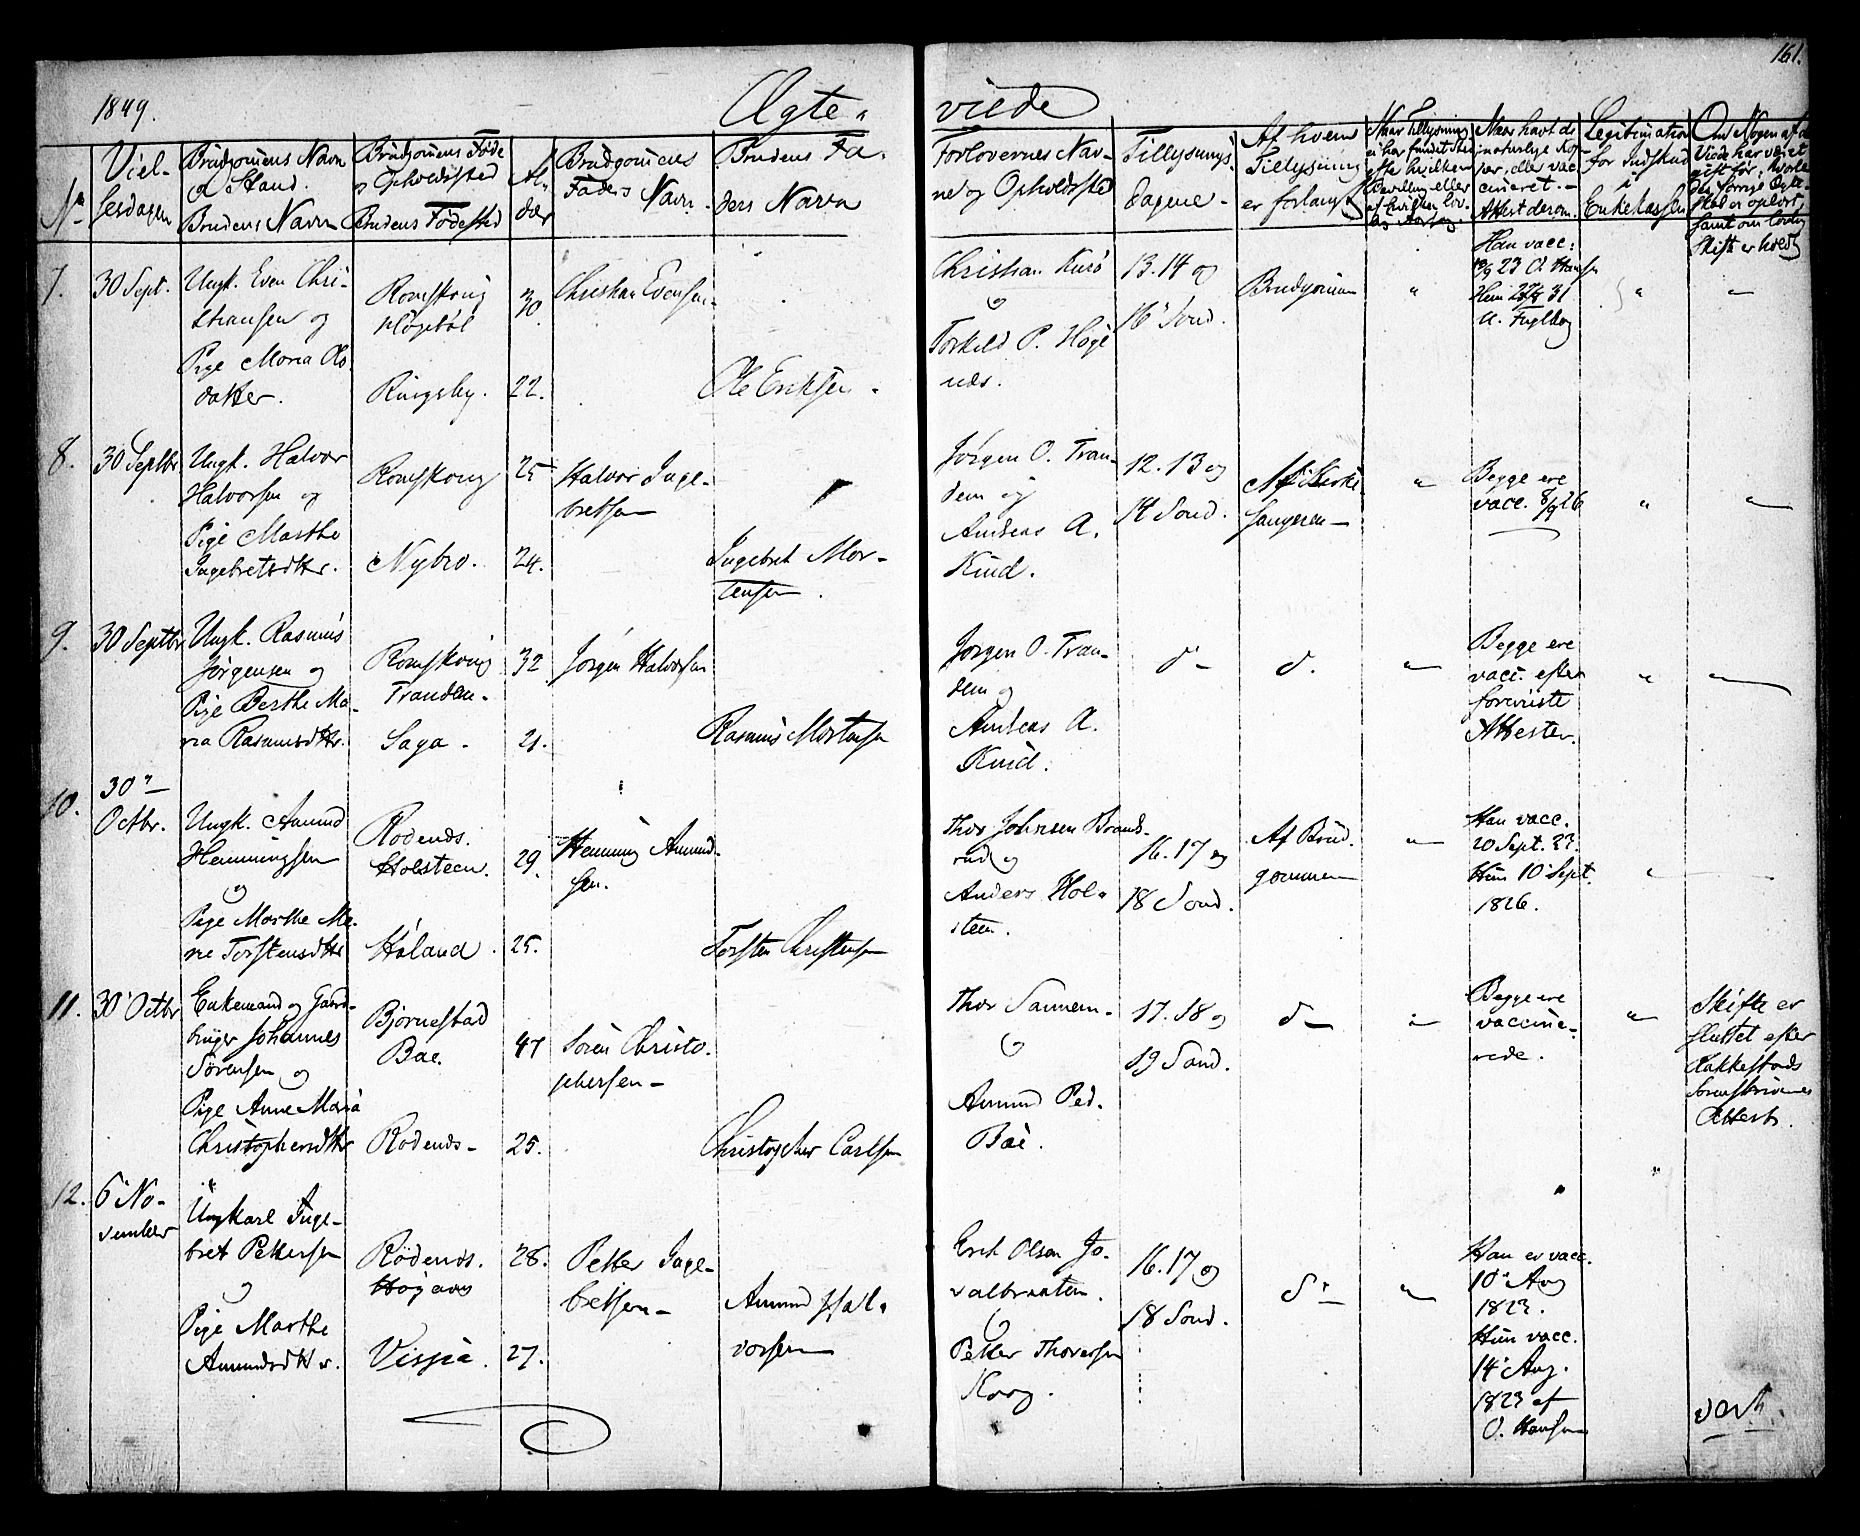 161.
1849.
Ægte-
viede
No
Viel-
sesdagen
Brudgomens Navn
og Stand.
Brudens Navn
Brudgomens Føde
og Opholdssted
Brudens Fødested
Al-
der
Brudgomens
Faders Navn.
Brudens Fa-
ders Navn
Forlovernes Nav-
ne og Opholdsted
Tillysnings
dagene-
Af hvem
Tillysning
er forlangt
Naar Tillysning
ei har fundet Sted
efter hvilken
Bevilling eller
Om havt de
naturlige Kop-
per, eller vac-
cineret.-
Attest derom.
Legitimation
for Indskud
i
Enkekassen
Om Nogen af de
Viede har været
gift før, hvorle-
des forrige Ægte-
skab er opløst,
samt om lovlig
Skifte er holdt
7.
30 Sept.
Ungk. Even Chri-
stiansen og
Pige Maria Ols-
datter.
Romskoug
Høgebøl
Ringsby.
30
22.
Christian Evensen-
Ole Eriksen-
Christian Kurö
og
Torkild P. Høge
næs.
13. 14 og
16 Sönd.
Brudgomen
"
Han vacc:
19/9 23 O. Hansen
Hun 31
A. Fuglberg
"
"
8.
30 Septbr
Ungk. Halvor
Halvorsen og
Pige Marthe
Ingebretsdttr.
Romskoug
Nybro.
25
24.
Halvor Inge-
bretsen
"
Ingebret Mor-
tensen.
Jørgen O. Tran-
dem og
Andreas A.
Kind.
12. 13 og
14 Sönd.
Af Kirke-
sangeren-
"
Begge ere
vacc. 8/9 26
"
"
9.
30 Septbr
Ungk. Rasmus
Jörgensen og
Pige Berthe Ma-
ria Rasmusdttr.
Romskoug
Trandem-
Saga-
32
21.
Jörgen Halvorsen
Rasmus Mortensen
Jørgen O. Tran-
dem og
Andreas A.
Kind.
do-
do.
"
Begge ere
vacc. efter
foreviiste
Attester.
"
"
10.
30"
Octbr.
Ungk. Amund
Henningsen
og
Pige Marthe Ma-
rie Torstensdttr
Rødenæs.
Holsteen.
Høland.
29.
25.
Henning Amund-
sen.
Torsten Christensen
Thor Johnsen Brand-
rud og
Anders Hol-
steen.
16. 17 og
18 Sönd.
Af Brud-
gommen
"
Han vacc.
20 Sept. 23.
Hun 10 Sept.
1826.
"
11.
30 Octbr
Enkemand og Gaard-
bruger Johannes
Sørensen og
Pige Anne Maria
Christophersdttr
Bjørnestad
Bae.
Rödenæs-
47
25.
Sören Christo-
phersen-
Christopher Carlsen
Thor Sannem-
og
Amund Ped.
Bae.
17. 18 og
19 Sönd.
do-
"
Begge ere
vaccine-
rede.
"
Skifte er
sluttet efter
Rakkestads
Sorenskrivers
Attest.
12.
6 No-
vember
Ungkarl Inge-
bret Pettersen
og
Pige Marthe
Amundsdttr.
Rödenæs.
Vispia.
28.
27.
Petter Inge-
bretsen-
Amund Hal-
vorsen
Erik Olsen Jo-
valbraaten.
og
Petter Thoresen
16. 17 og
18 Sönd.
do-
"
Han er vacc.
10 Aug
1823.
Hun vacc.
14 Aug.
1823 af
O. Hansen
"
vert.